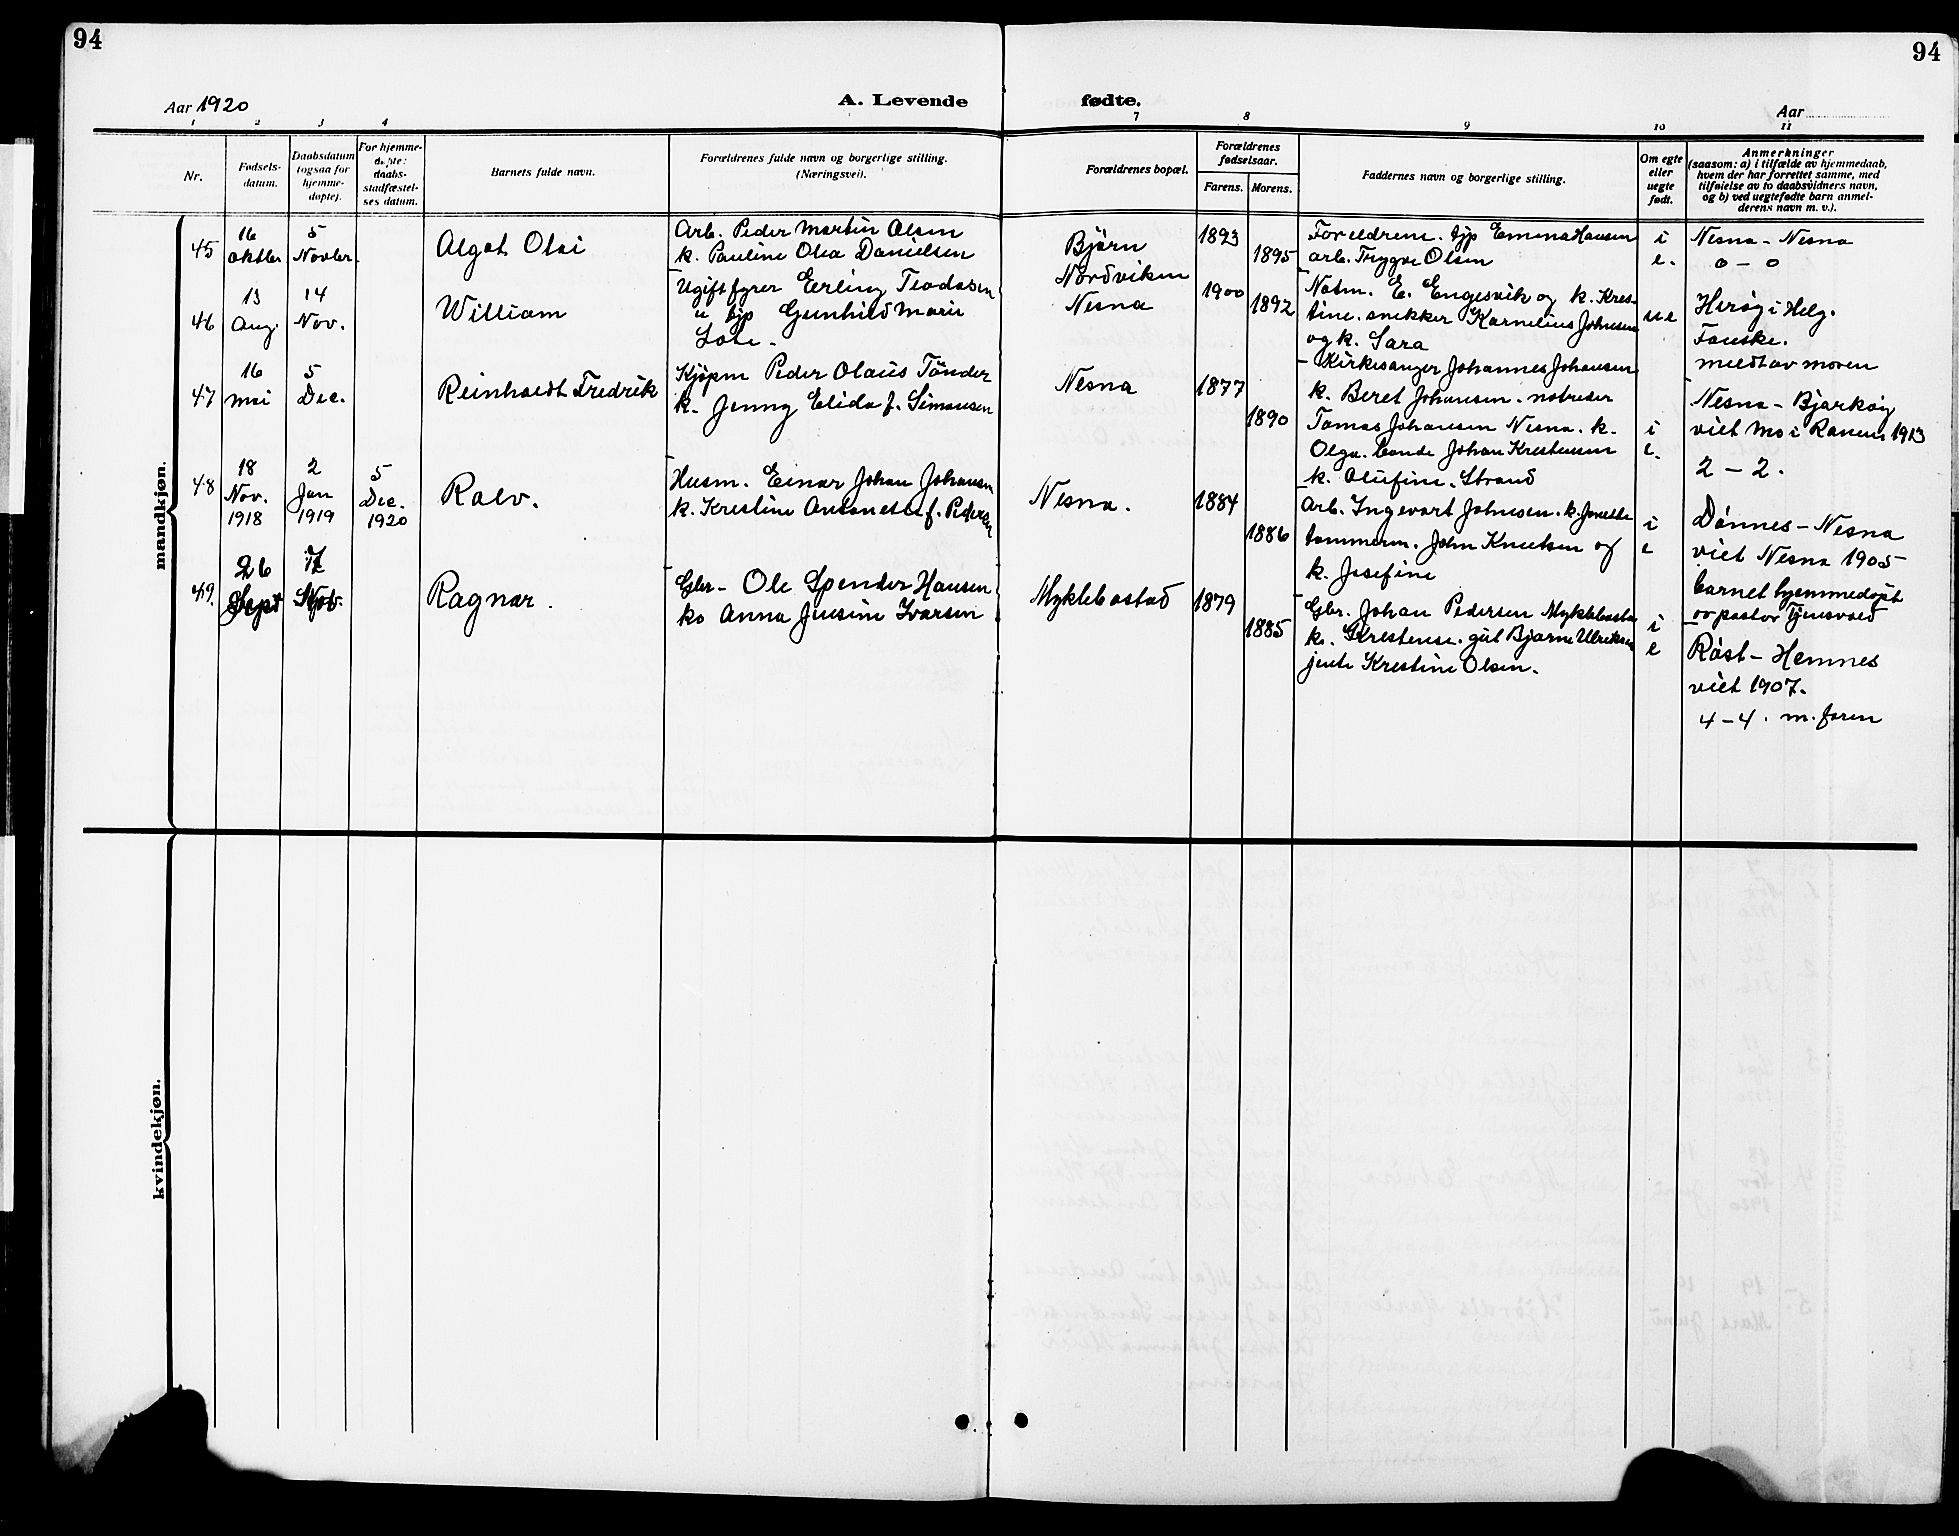 94
94
Aar 1920
A. Levende fødte.
Aar
1 2 3 4 7 8 9 10 11
Nr.
Fødsels-
datum.
Daabsdatum
(ogsaa for
hjemme-
døpte).
For hjemme-
døpte:
daabs-
stadfæstel-
ses datum.
Barnets fulde navn.
Forældrenes fulde navn og borgerlige stilling.
(Næringsvei).
Forældrenes bopæl.
Forældrenes
fødselsaar.
Farens. Morens.
Faddernes navn og borgerlige stilling.
Om egte
eller
uegte
født.
Anmerkninger
(saasom: a) i tilfælde av hjemmedaab,
hvem der har forrettet samme, med
tilføielse av to daabsvidners navn,
og b) ved uegtefødte barn anmel-
derens navn m. v.).
mandkjøn.
45
16
oktber
5
Novber
Algot Olai
Arb. Peder Martin Olsen
k. Pauline Olea Danielsen
Bjørn
1893
1895
Foreldrene. tjp Emma Hansen
arb. Trygve Olsen
i
e.
Nesna - Nesna
0 - 0
46
13
Aug.
14
Nov.
William
Ugift fyrer Erling Teodosen
u tjp Gunhild Marie
Nordviken
Nesna
1900
1892
Notm. E. Engesvik og k. Kres-
tine. snekker Kornelius Johnsen
og k. Sara
ue
Herøy i Helg.
Fauske.
meldt av moren
47
16
mai
5
Dec.
Reinholdt Fredrik
Kjøpm Peder Olaus Tønder
k. Jenny Elida f. Simonsen
Nesna
1877
1890
Kirkesanger Johannes Johansen
k. Beret Johansen. notreder
Tomas Johansen Nesna. k.
Olga. bonde Johan Krestensen
k. Olufine. Strand
i
e.
Nesna - Bjarkøy
viet Mo i Ranen 1913
2 - 2.
48
18
Nov.
1918
2
Jan
1919
5
Dec.
1920
Rolv.
Husm. Einar Johan Johansen
k. Kristine Antonette f. Pedersen
Nesna.
1884
1886
Arb. Ingevart Johnsen. k. Jonette
tømmerm. John Knutsen og
k. Josefine
i
e
Dønnes - Nesna
viet Nesna 1905
barnet hjemmedøpt
av pastor Tjensvold
49.
26
Sept
7
Nov.
Ragnar.
Gbr - Ole Spender Hansen
ko Anna Jensine Ivarsen
Myklebostad
1879
1885
Gbr. Johan Pedersen Myklebosta
k. Krestense. gut Bjarne Ulriksen
jente Krestine Olsen.
i
e
Røst - Hemnes
viet 1907.
4 - 4. m. faren
kvindekjøn.